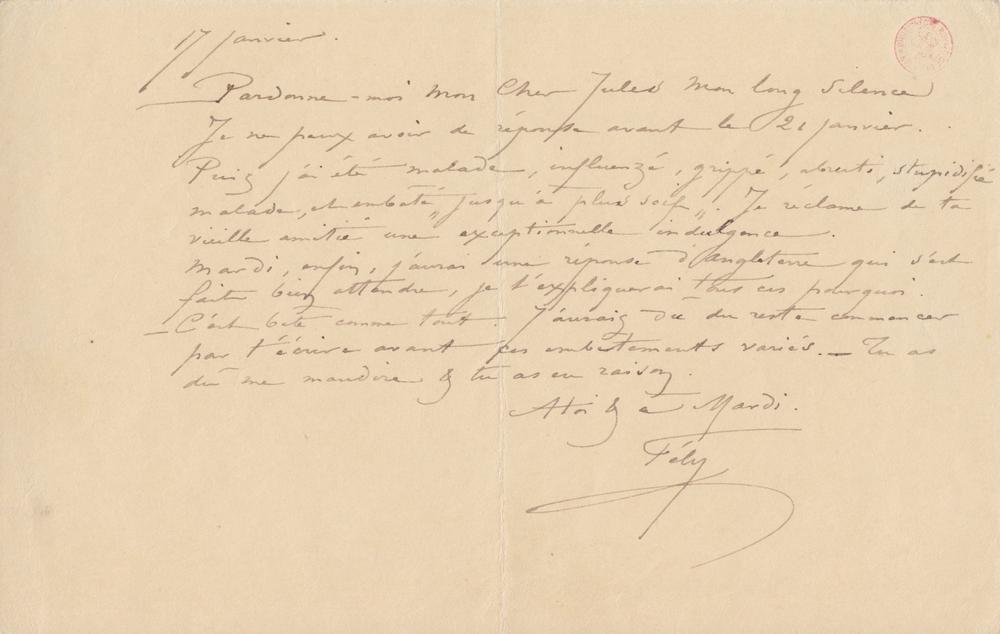 17 janvier.
Pardonne-moi mon Cher Jules mon long silence
Je ne peux avoir de réponse avant le 21 janvier.
Puis j'ai été malade, influenzé, grippé, abruti, stupidifié
malade, et embêté „jusqu'à plus soif„. Je réclame de ta
vieille amitié une exceptionnelle indulgence.
Mardi, enfin, j'aurai une réponse d'Angleterre qui s'est
faite bien attendre, je t'expliquerai tous ces pourquoi.
– C'est bête comme tout. J'aurais dû du reste commencer
par t'écrire avant ces embêtements variés. – Tu as
dû me maudire & tu as eu raison.
A toi & à Mardi.
Fély